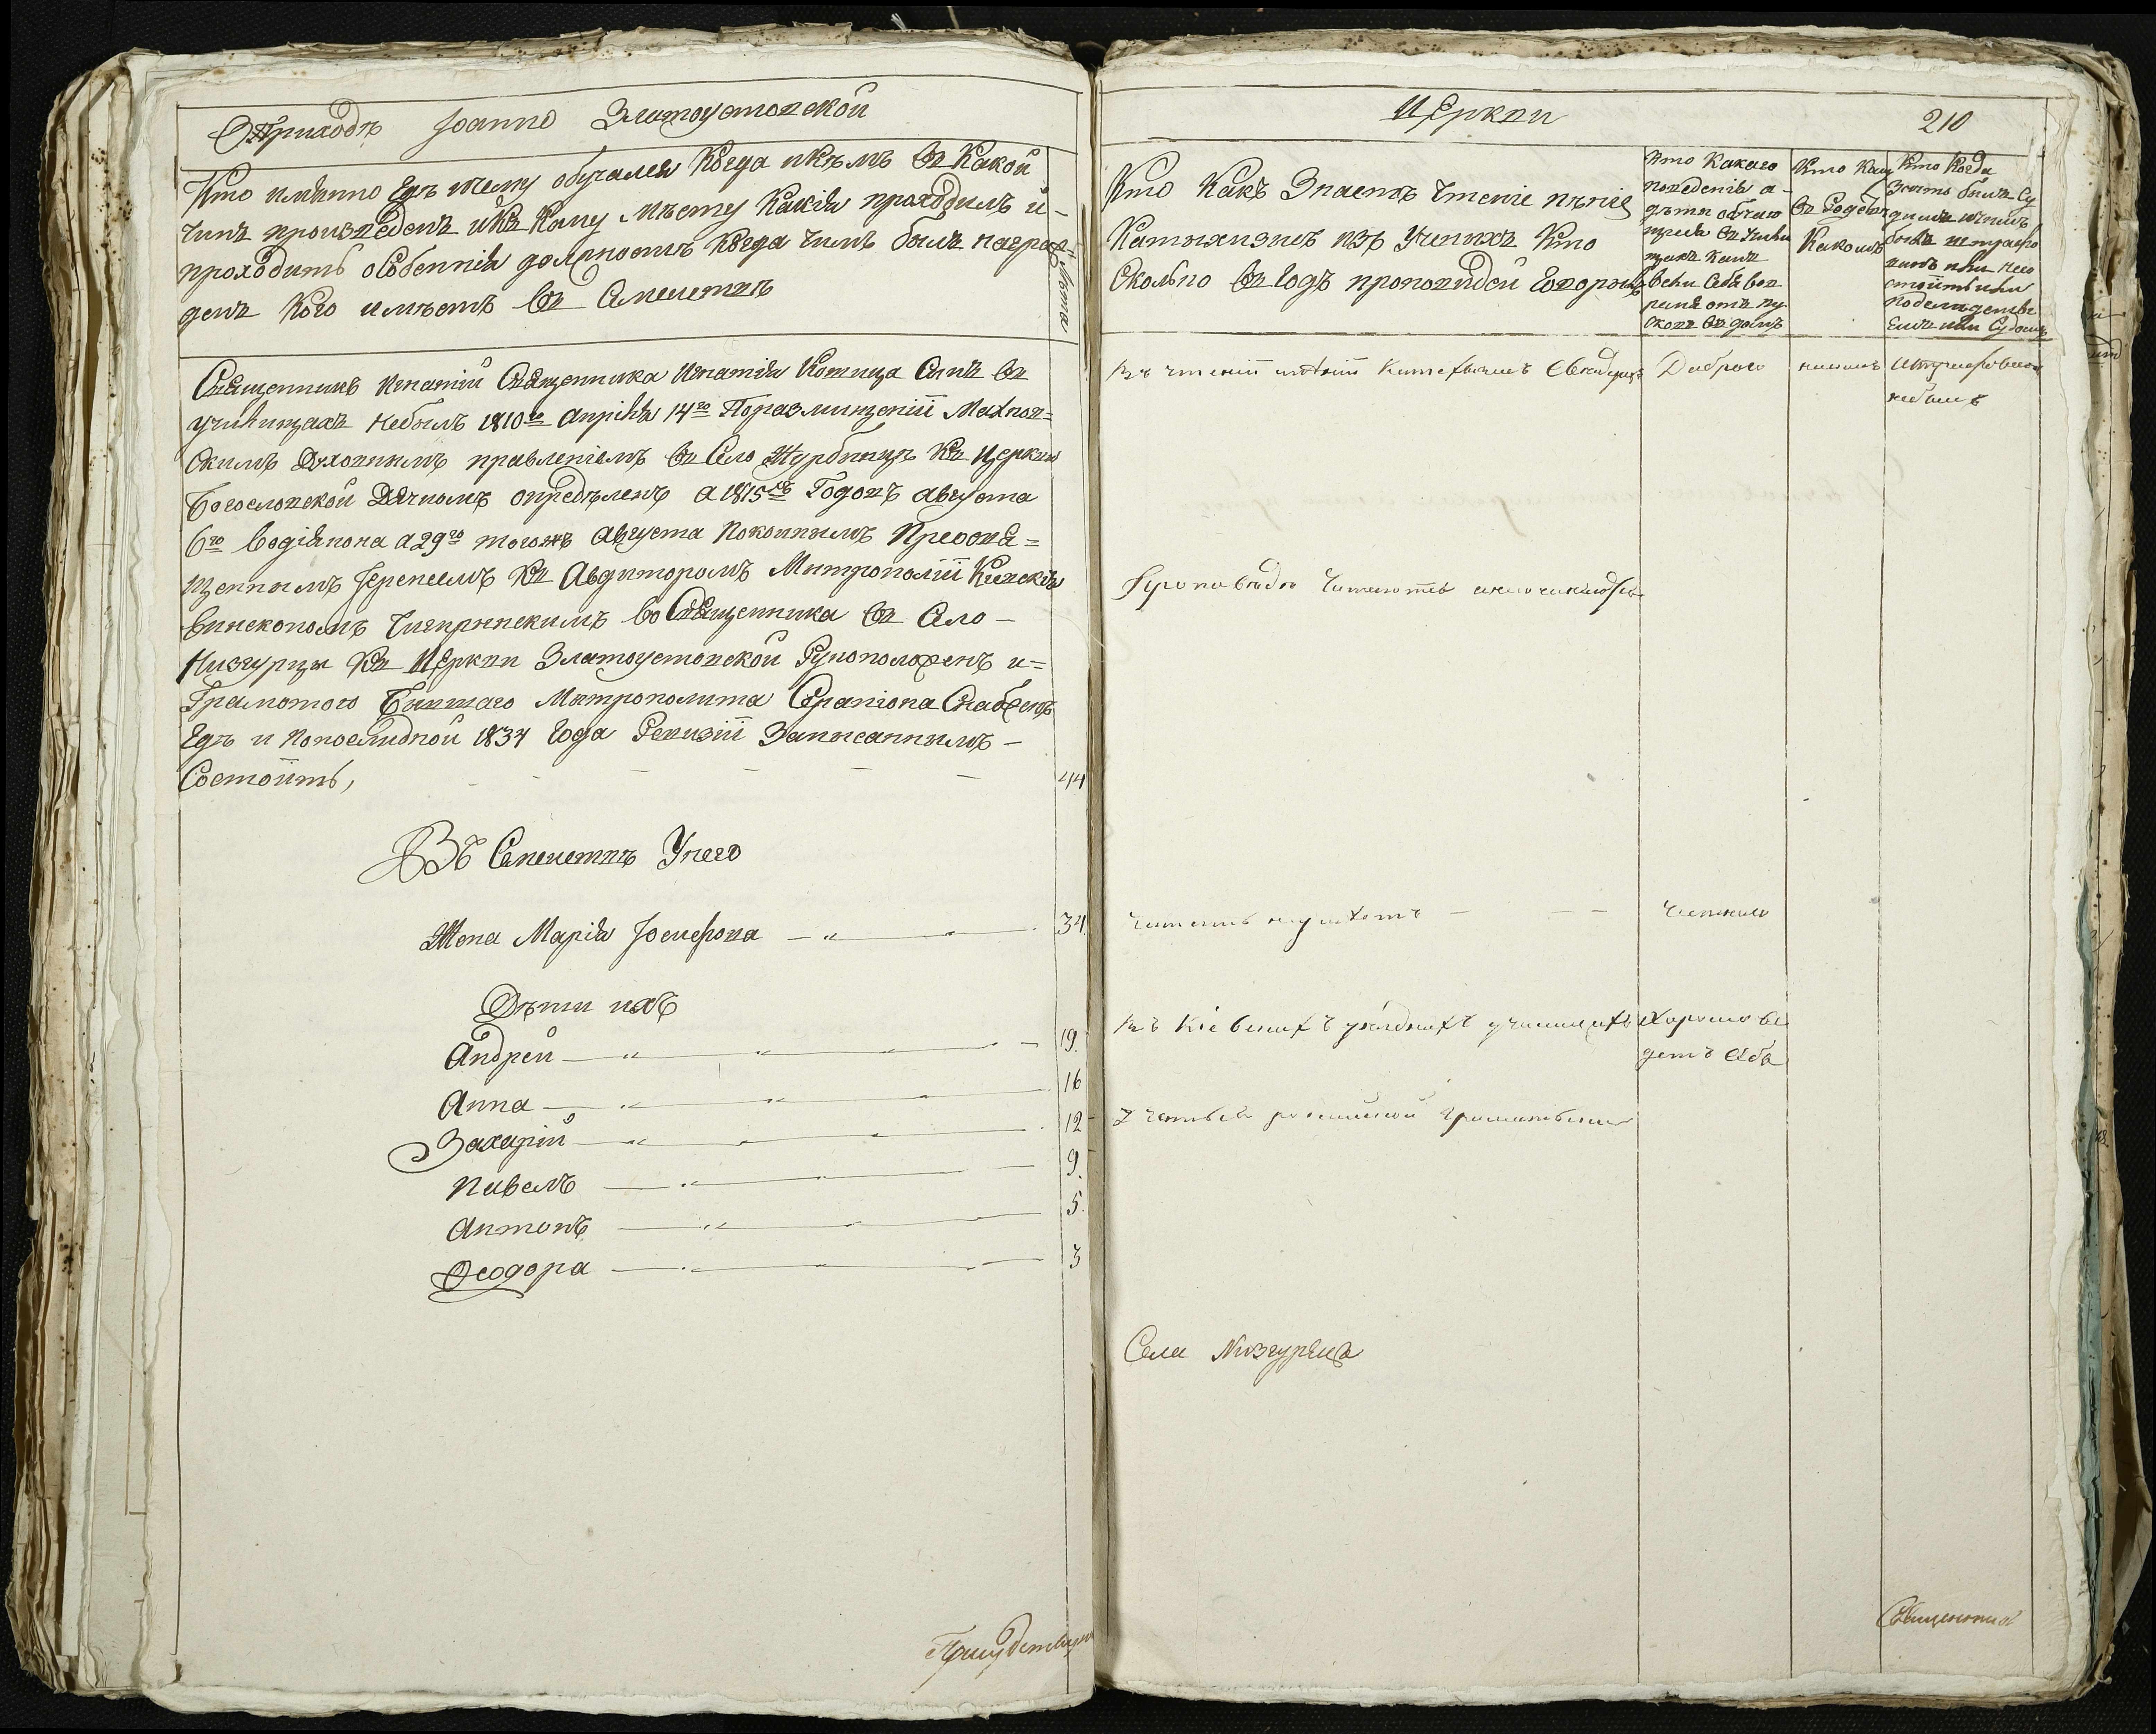 О Приходѣ Іоанно Златоустовской
Кто имѣнно Гдѣ и чему обучался Когда и кѣмъ въ Какой
чинъ произведенъ и къ Кому мѣсту Какія проходилъ и
проходитъ особенныя должность Когда чимъ былъ награж
денъ Кого имѣетъ въ Семействѣ
Лѣта
Священникъ Игнатій Священника Игнатія Котица Сынъ въ
училищахъ небылъ 1810го Апрѣля 14го По размищеніи Махнов=
скимъ Духовнымъ правленіемъ въ Село Журбинцѣ къ Церкви
Богословской Дячкомъ опредѣленъ а 1815го Годовъ августа
6го во діякона а 29го того жъ Августа Покойнымъ Преосвя=
щеннымъ Іеренеемъ Коадъюторомъ Митрополіи Кіевскія
Епископомъ Чигиринскимъ во Священника въ Село –
Низгурцы къ Церкви Златоустовской Рукоположенъ и=
Грамотою Бывшаго Митрополита Серапіона Снабженъ
Гдѣ и по послѣдной 1834 Года Ревизіи Записаннымъ –
Состоитъ, 44
Въ Семействѣ Унего
Жена Марія Іосифова 34
Дѣти ихъ
Андрей 19.
Анна 16
Захарій 12
Павелъ 9.
Антонъ 5.
Феодора 3
Церкви 210
Кто Какъ Знаетъ Чтеніе пѣніе
Катихизисъ изъ Ученыхъ Кто
Сколько въ Годъ проповѣдей Говорилъ
Кто Какаго
поведенія а
дѣти обучаю
щіеся въ Учили
щахъ
Кто Кому
въ Родствѣ
Какомъ
Кто Когда
За что былъ Су
димъ
Въ чтеніи и пѣніи Катехизисъ Свѣдущъ Доброго никому Штрафованъ
небылъ
Проповѣди Читаетъ
Читать неумѣетъ Честного
Въ Кіевскихъ уѣздныхъ училищахъ Хорошо ве
детъ себя
Россійской
Села Низгурецъ
Священникъ